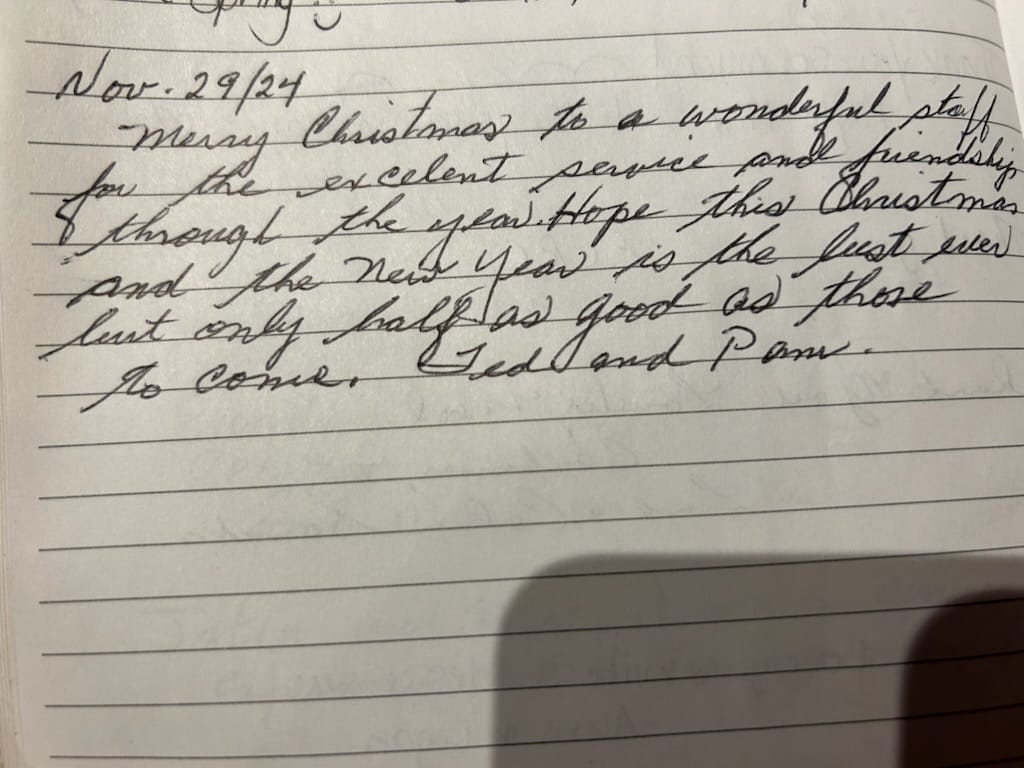 Spring :)
Nov. 29/24
Merry Christmas to a wonderful staff
for the excelent service and friendship
through the year. Hope this Christmas
and the New Year is the best ever
but only half as good as those
to come. Ted and Pam.